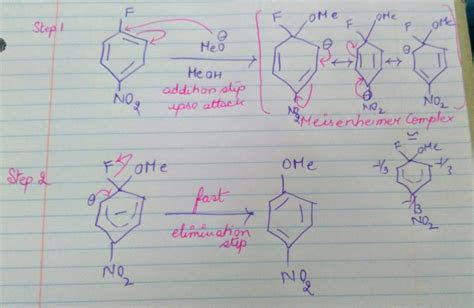 Step 1
F
MeO⊖
MeOH
addition step
ipso attack
NO2
F OMe
⊖
NO2
F OMe
⊖
NO2
F OMe
⊖
NO2
Meisenheimer Complex
Step 2
F OMe
⊖
NO2
fast
elimination
step
OMe
NO2
F OMe
-1/3 -1/3
-1/3
NO2